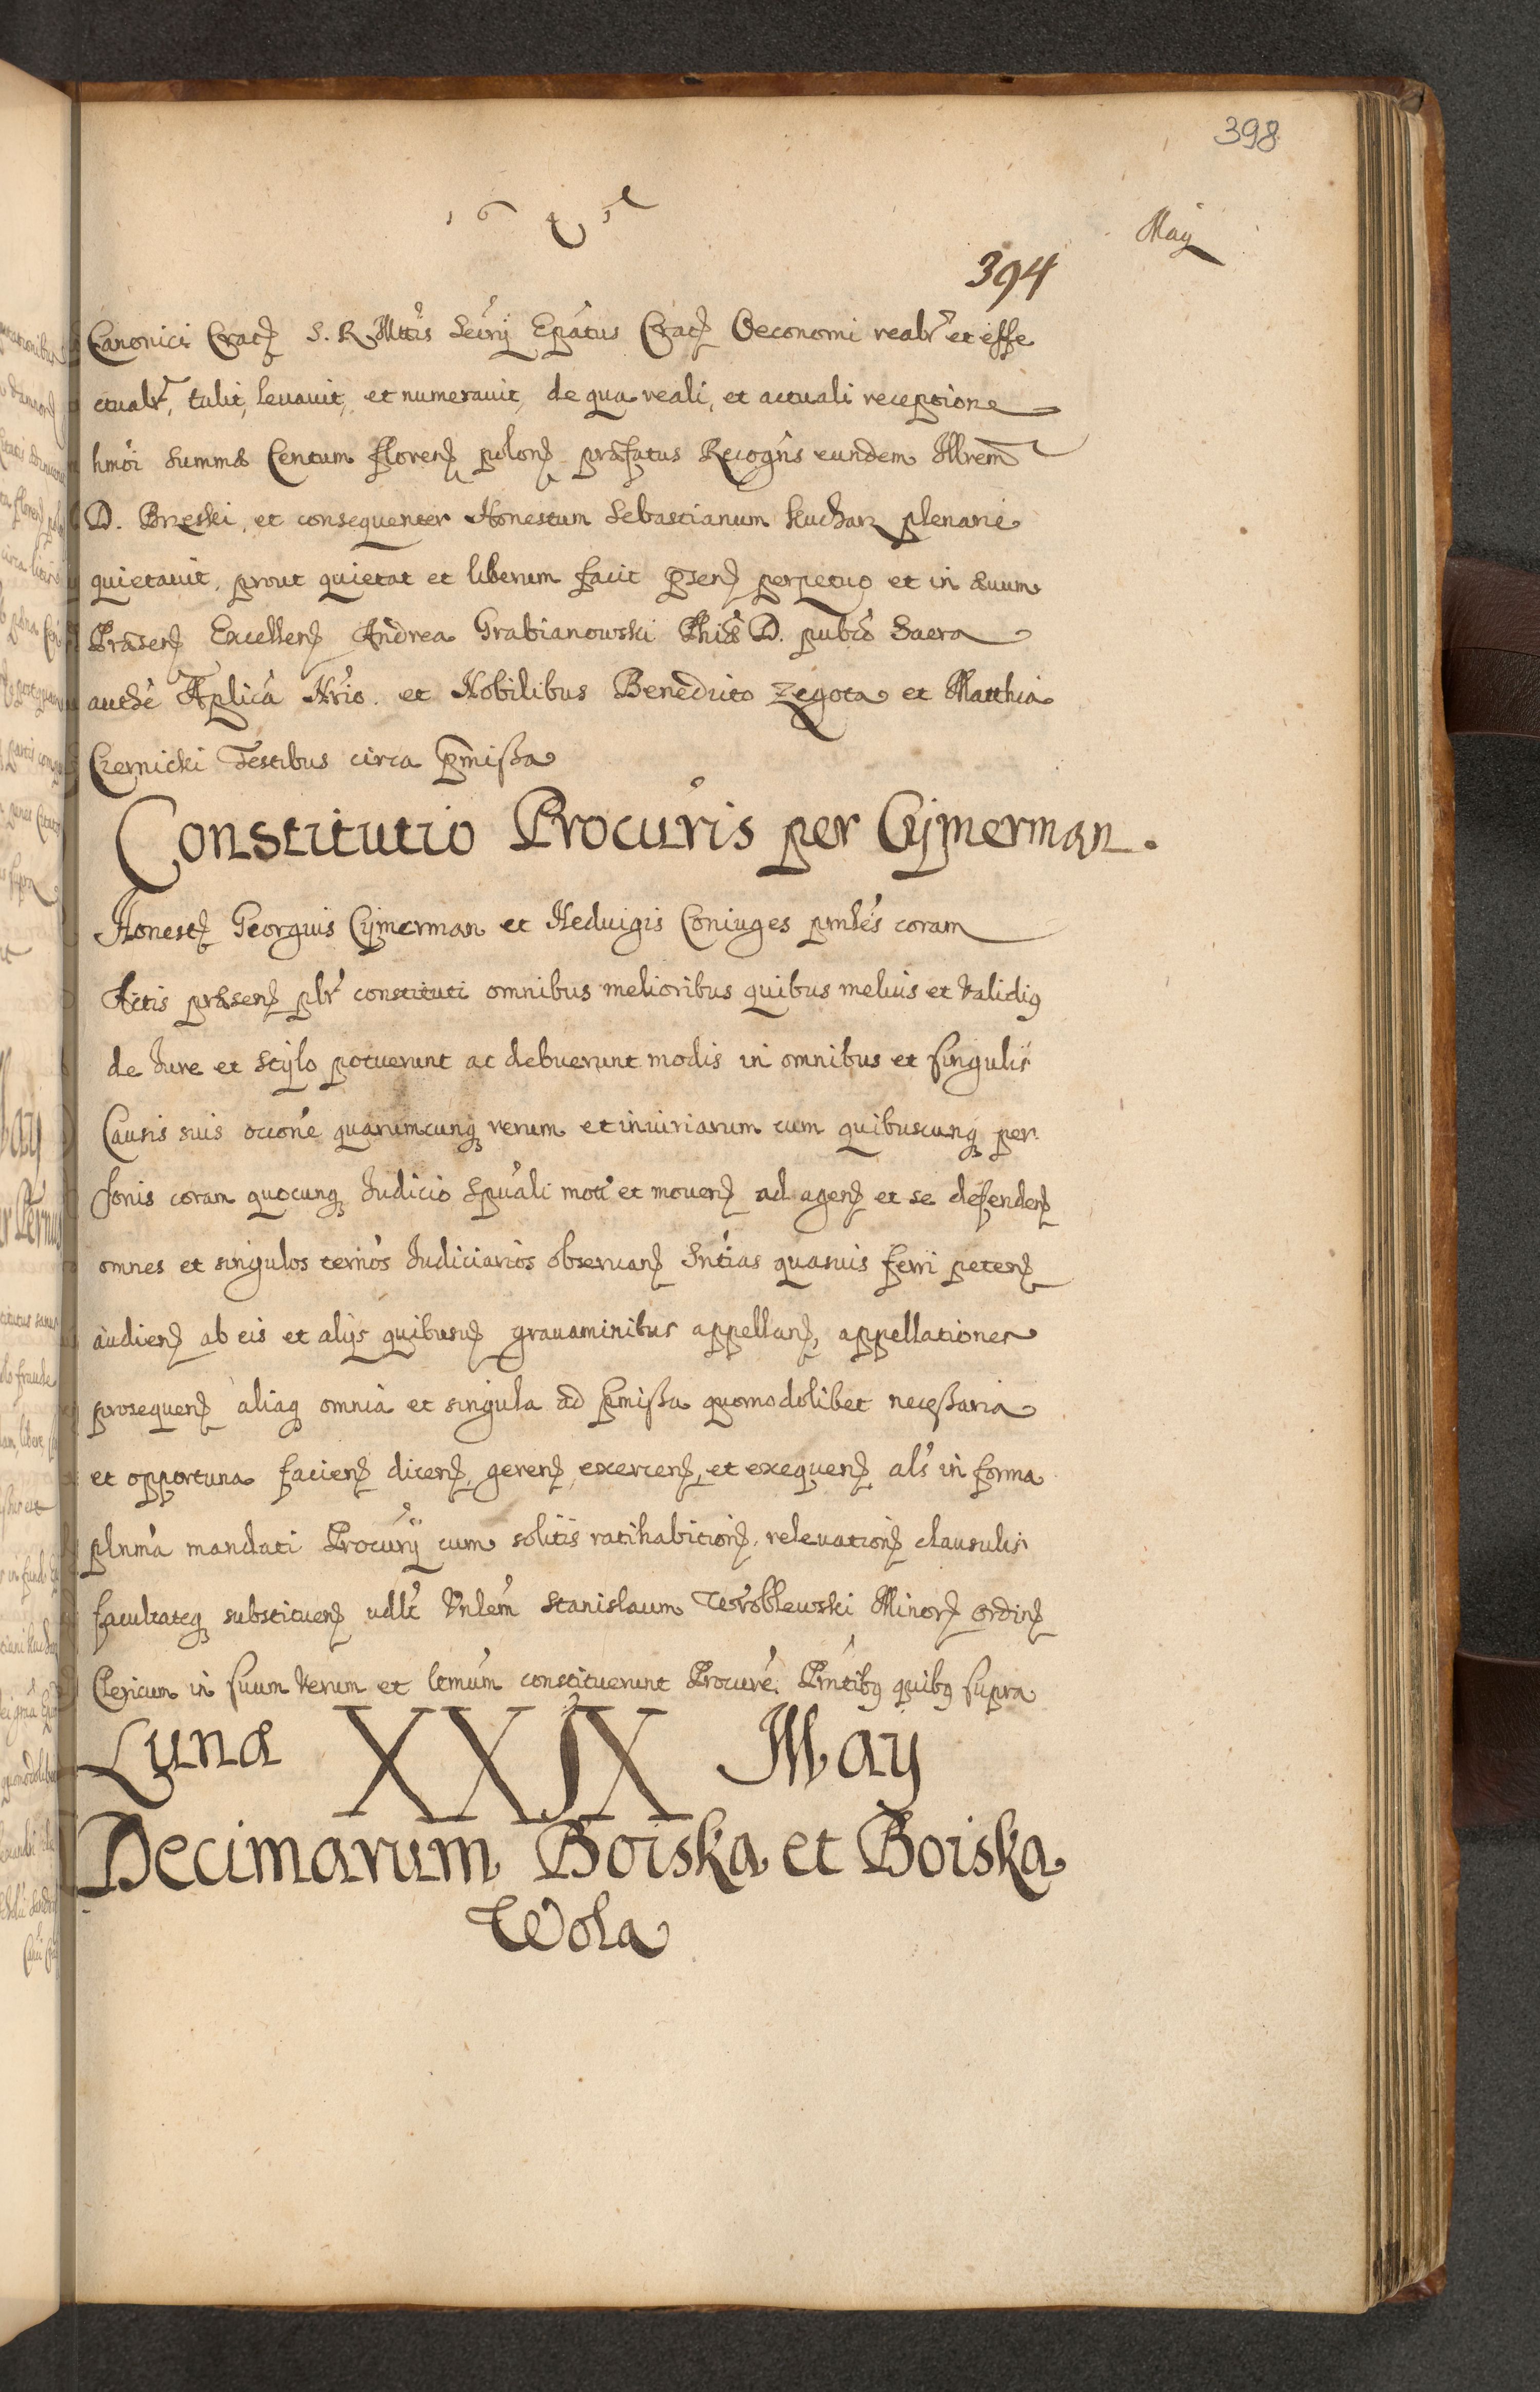 398
May
394
Canonici Crac S. R. Mttis Secrij Epatus Crac Oeconomi realr et effe
ctualr, tulit, leuauit, et numerauit, de qua reali, et actuali receptione
hmoi summa Centum floren polon præfatus Recogns eundem Illrem
D. Brzeski, et consequenter Honestum Sebastianum Kucharz plenarie
quietauit, prout quietat et liberum facit psen perpetuo et in suum
Præsen Excellen Andrea Grabianowski Phiæ D. pubco Sacra
authe Aplica Nrio. et Nobilibus Benedicto Zegota et Matthia
Czernicki Testibus circa pmissa
Constitutio Procuris per Cijmerman.
Honest Georgius Cijmerman et Heduigis Coniuges pmles coram
Actis præsen plr constituti omnibus melioribus quibus melius et validig
de Iure et Stijlo potuerunt ac debuerunt modis in omnibus et singulis
Causis suis occone quarumcunq rerum et iniuriarum cum quibuscunq per
sonis coram quocunq Iudicio Spuali moti et mouen ad agen et se defenden
omnes et singulos termos Iudiciarios obseruan Sntias quasuis ferri peten
audien ab eis et alijs quibusuis grauaminibus appellan, appellationes
prosequen aliaq omnia et singula ad pmissa quomodolibet necessaria
et opportuna facien dicen, geren, exercen, et exequen als in forma
plnma mandati Procurij cum solitis ratihabition, releuation clausulis
facultateq substituen udlt Vnlem Stanislaum Wroblewski Minor ordin
Clericum in suum verum et lemum constituerunt Procure. Pntibq quibq supra
Lunæ XXIX May
Decimarum Boiska et Boiska
Wola